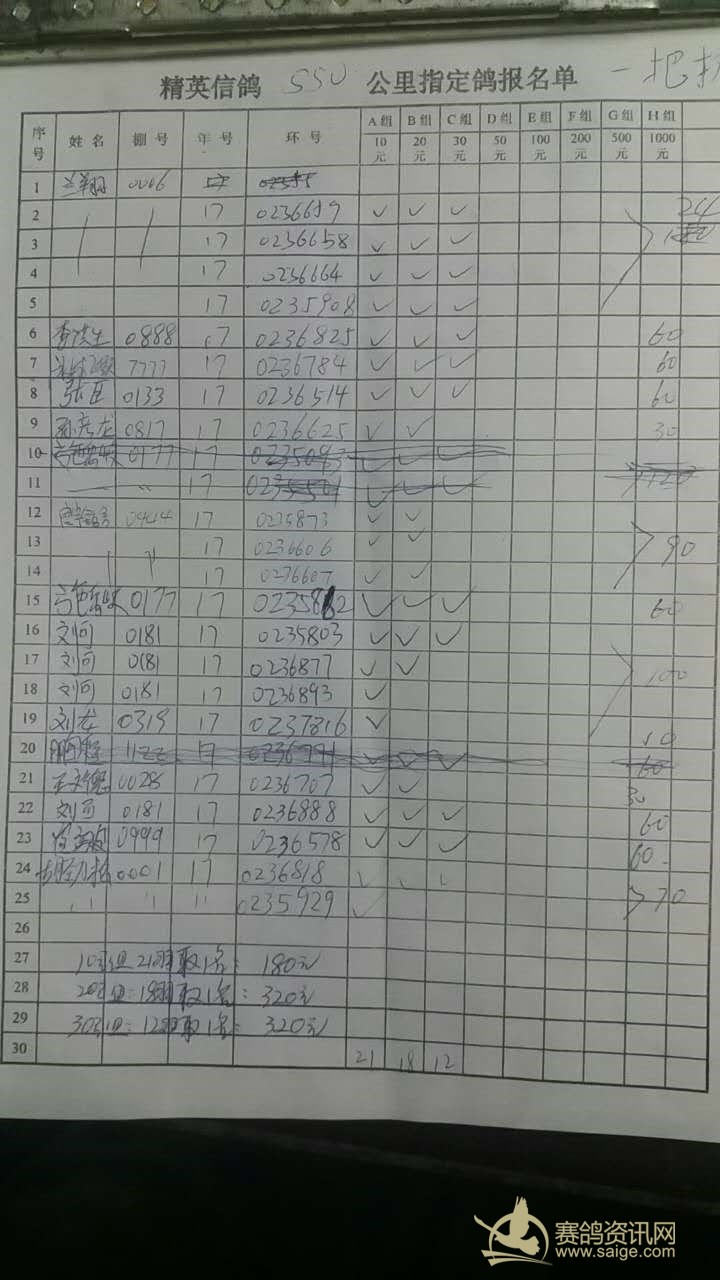 精英信鸽 550 公里指定鸽报名单 一把
序号 姓名 棚号 年号 环号 A组 B组 C组 D组 E组 F组 G组 H组
10元 20元 30元 50元 100元 200元 500元 1000元
1 0006
2 17 0236659 ✓ ✓ ✓ 24
3 17 0236658 ✓ ✓ ✓
4 17 0236664 ✓ ✓ ✓
5 17 0235908 ✓ ✓ ✓
6 0888 17 0236825 ✓ ✓ ✓ 60
7 7777 17 0236784 ✓ ✓ ✓ 60
8 张臣 0133 17 0236514 ✓ ✓ ✓ 60
9 孙彦龙 0817 17 0236625 ✓ ✓ 30
10 0177 17 ✓ ✓ ✓
11 17 ✓ ✓ ✓ 120
12 17 0235873 ✓ ✓
13 17 0236606 ✓ ✓ 90
14 17 0236607 ✓ ✓
15 0177 17 ✓ ✓ ✓ 60
16 0181 17 0235803 ✓ ✓ ✓
17 0181 17 0236877 ✓ ✓ 100
18 0181 17 0236893 ✓
19 刘龙 0319 17 0237816 ✓ 10
20 1122 ✓ ✓ ✓ 60
21 0028 17 0236707 ✓ ✓ 30
22 0181 17 0236888 ✓ ✓ ✓ 60
23 0999 17 0236578 ✓ ✓ ✓ 60
24 0001 17 0236818 ✓ ✓ ✓
25 " " " 0235929 ✓ 70
26
27 10元组21羽取1名: 180元
28 20元组:18羽取1名: 320元
29 30元组:12羽取1名: 320元
30 21 18 12
赛鸽资讯网
www.saige.com